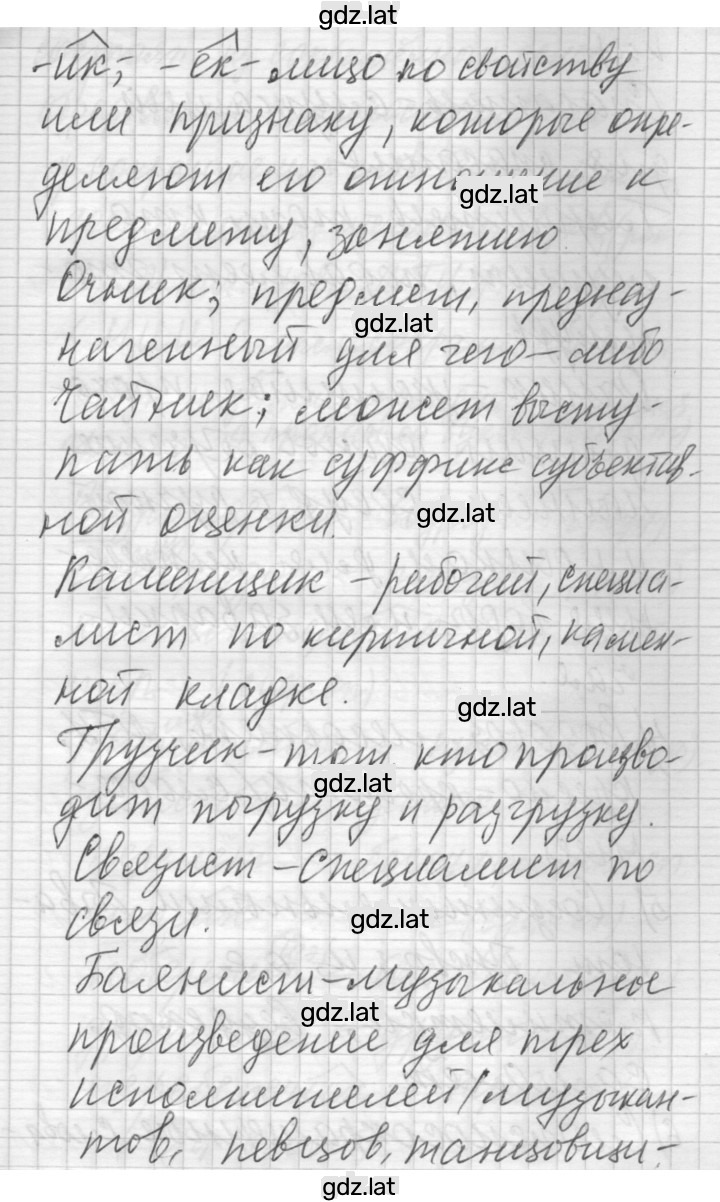 gdz.lat
-ик; -ек- лицо по свойству
или признаку, которые опре-
деляют его отношение к
gdz.lat
предмету, занятию
Очник; предмет, предназ-
gdz.lat
наченный для чего-либо
Чайник; может высту-
пать как суффикс субъектив-
ной оценки.
gdz.lat
Каменщик - рабочий, специа-
лист по кирпичной, камен-
ной кладке.
gdz.lat
Грузчик - тот кто произво-
gdz.lat
дит погрузку и разгрузку.
Связист - специалист по
связи.
gdz.lat
Баянист - музыкальное
gdz.lat
произведение для трех
исполнителей/музыкан-
тов, певцов, танцовщи-
gdz.lat